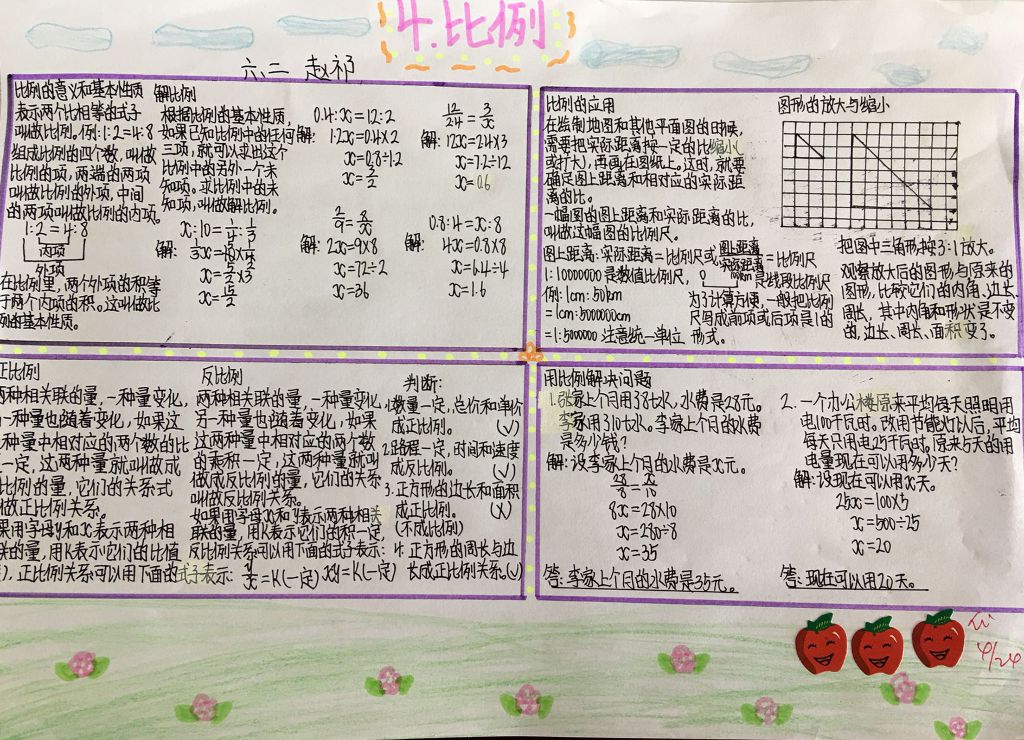 4.比例
六二 赵祁
比例的意义和基本性质
表示两个比相等的式子
叫做比例。例:1:2=4:8
组成比例的四个数,叫做
比例的项,两端的两项
叫做比例的外项,中间
的两项叫做比例的内项。
1:2=4:8
内项
外项
在比例里,两个外项的积等
于两个内项的积。这叫做比
例的基本性质。
解比例
根据比例的基本性质,
如果已知比例中的任何
三项,就可以求出这个
比例中的另外一个未
知项。求比例中的未
知项,叫做解比例。
0.4:x=12:2
解: 12x=0.4×2
x=0.8÷12
12/24=3/x
解: 12x=24×3
x=72÷12
x=0.6
解:
2/9=8/x
解: 2x=9×8
x=72÷2
x=36
0.8:4=x:8
解: 4x=0.8×8
x=6.4÷4
x=1.6
比例的应用
在绘制地图和其他平面图的时候,
需要把实际距离按一定的比缩小(
或扩大),再画在图纸上。这时,就要
确定图上距离和相对应的实际距
离的比。
一幅图的图上距离和实际距离的比,
叫做这幅图的比例尺。
图上距离:实际距离=比例尺或图上距离/实际距离=比例尺
1:10000000是数值比例尺,
是线段比例尺
例:1cm:50km
=1cm:5000000cm
=1:5000000 注意统一单位
为了计算方便,一般把比例
尺写成前项或后项是1的
形式。
图形的放大与缩小
把图中三角形按3:1放大。
观察放大后的图形与原来的
图形,比较它们的内角、边长、
周长,其中内角和形状是不变
的,边长、周长、面积变了。
正比例
两种相关联的量,一种量变化,
一种量也随着变化,如果这
种量中相对应的两个数的比
一定,这两种量就叫做成
比例的量,它们的关系式
做正比例关系。
果用字母y和x表示两种相
联的量,用K表示它们的比值
),正比例关系可以用下面的式子表示: y/x=K(一定)
反比例
两种相关联的量,一种量变化
另一种量也随着变化,如果
这两种量中相对应的两个数
的乘积一定,这两种量就叫
做成反比例的量,它们的关系
叫做反比例关系。
如果用字母x和y表示两种相关
联的量,用K表示它们的积一定,
反比例关系可以用下面的式子表示:
xy=K(一定)
判断:
1.数量一定,总价和单价
成正比例。 (√)
2.路程一定,时间和速度
成反比例。 (√)
3.正方形的边长和面积
成正比例。 (X)
(不成比例)
4.正方形的周长与边
长成正比例关系。(√)
用比例解决问题
1.张家上个月用了8t水,水费是28元。
李家用了10t水。李家上个月的水费
是多少钱?
解:设李家上个月的水费是x元。
28/8=x/10
8x=28×10
x=280÷8
x=35
答:李家上个月的水费是35元。
2.一个办公楼原来平均每天照明用
电100千瓦时。改用节能灯以后,平均
每天只用电25千瓦时。原来5天的用
电量现在可以用多少天?
解:设现在可以用x天。
25x=100×5
x=500÷25
x=20
答:现在可以用20天。
4/24